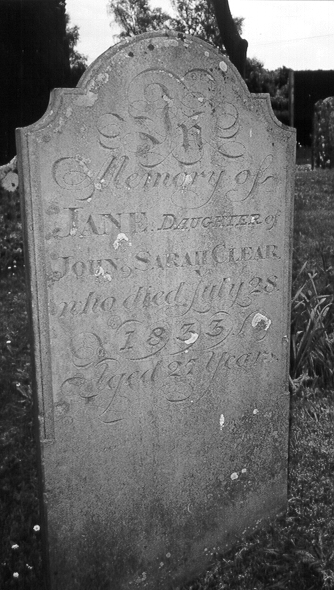 In
Memory of
JANE DAUGHTER of
JOHN & SARAH CLEAR
who died July 28
1833
Aged 27 Years